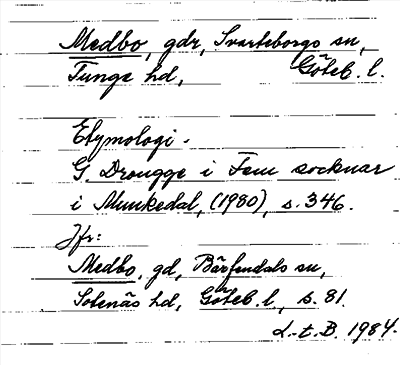 Medbo, gdr, Svarteborgs sn,
Tunge hd, Göteb. l.
Etymologi.
G. Drougge i Fem socknar
i Munkedal, (1980), s. 346.
Jfr:
Medbo, gd, Bärfendals sn,
Sotenäs hd, Göteb. l, s. 81.
L.-t. B. 1984.